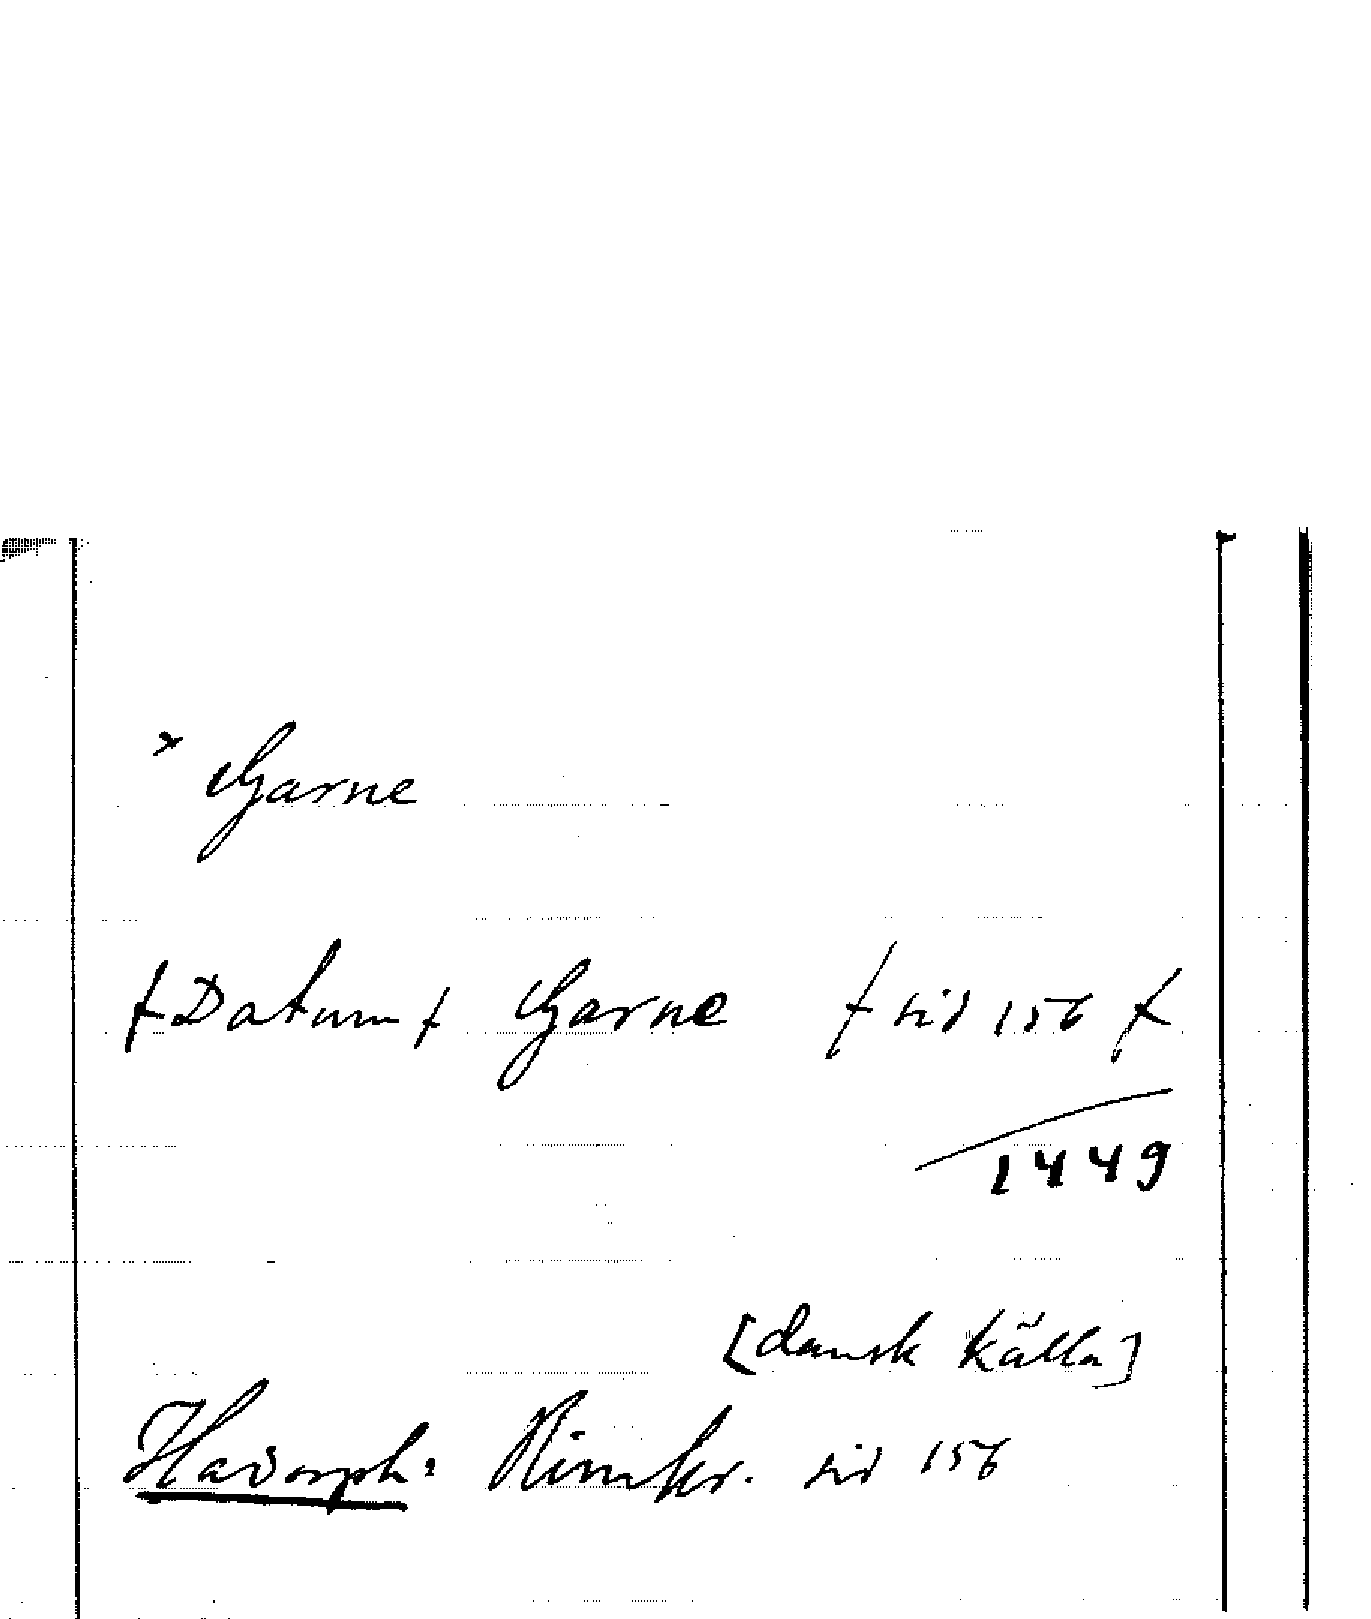 × Garne
ƒ Datum ƒ Garne ƒ sid 156 ƒ
1449
[dansk källa]
Hadorph: Rimkr. sid 156